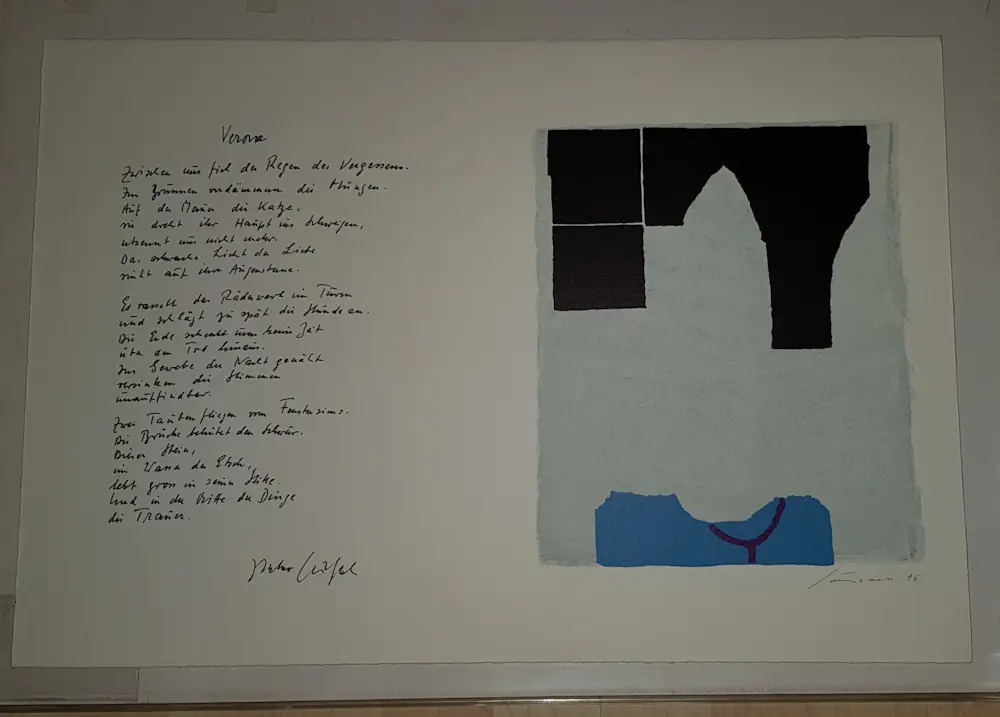 Verona
Zwischen uns fiel der Regen des Vergessens.
Im Brunnen verdämmern die Münzen.
Auf der Mauer die Katze,
sie dreht ihr Haupt ins Schweigen,
erkennt uns nicht mehr.
Das schwache Licht der Liebe
sinkt auf ihre Augensterne.
Es rasselt das Räderwerk im Turm
und schlägt zu spät die Stunde an.
Die Erde schenkt uns keine Zeit
über den Tod hinaus.
Ins Gewebe der Nacht genäht
versinken die Stimmen
unauffindbar.
Zwei Tauben fliegen vom Fenstersims.
Die Brücke behütet den Schwur.
Dieser Stein,
im Wasser der Etsch,
lebt gross in seiner Stille.
Und in der Mitte der Dinge
die Trauer.
Peter Huchel
76